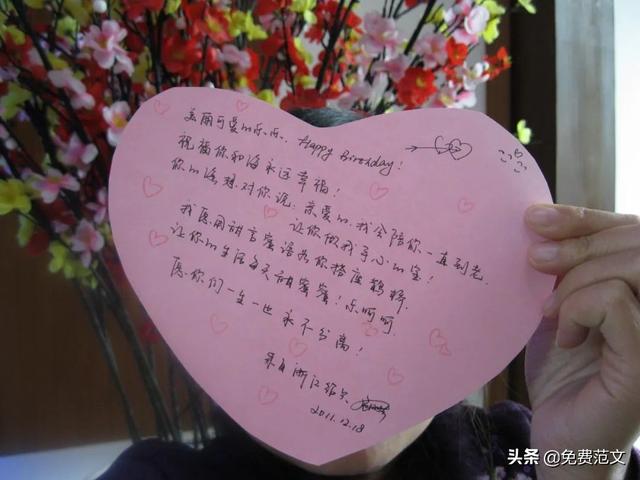 美丽可爱的乐乐、Happy Birthday!
祝福你和海永远幸福!
你的海想对你说、亲爱的、我会陪你一直到老.
让你做我手心的宝!
我愿用甜言蜜语为你搭座鹊桥.
让你的生活每天甜蜜蜜!乐呵呵.
愿.你们一生一世永不分离!
来自浙江绍兴
2011.12.18
头条 @免费范文